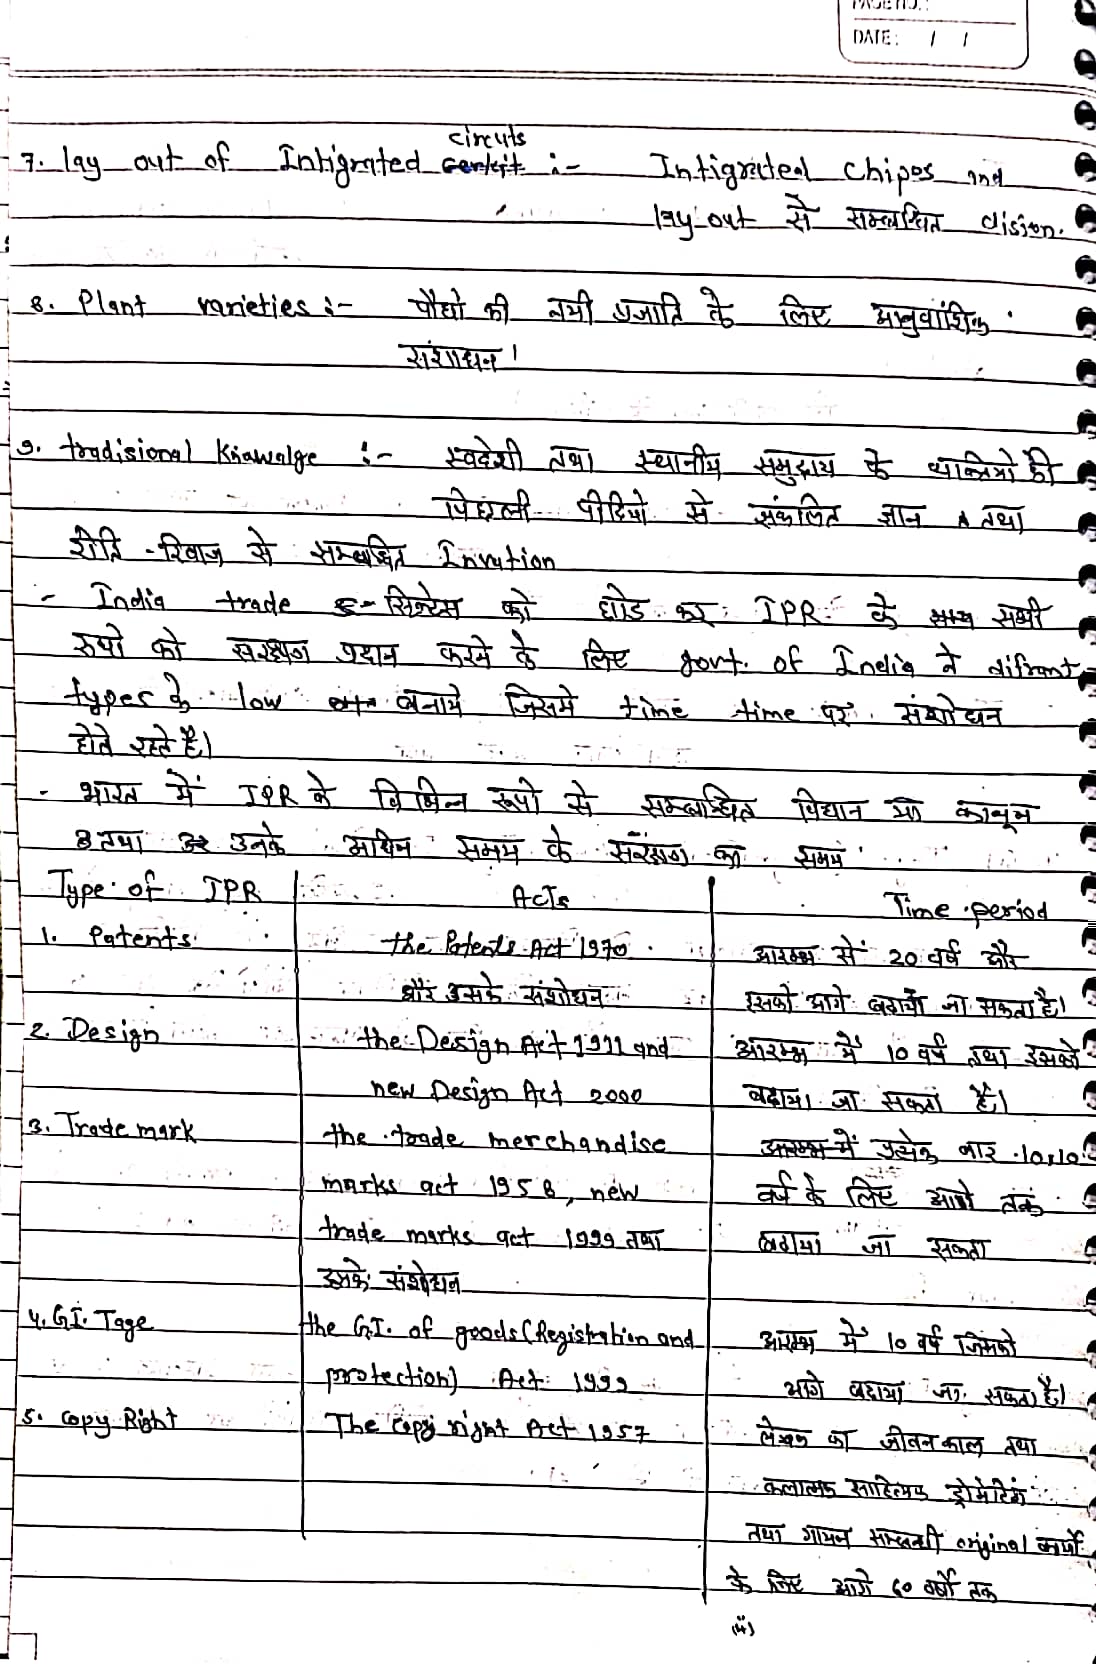 PAGE NO.:
DATE: / /
circuts
7. lay out of Intigrated :- Intigrated chipes and
lay-out से सम्बन्धित dision.
8. Plant varieties :- पौधो की नयी प्रजाति के लिए आनुवांशिक
संशोधन।
9. tradisional Knawalge :- स्वदेशी तथा स्थानीय समुदाय के व्यक्तियो की
पिछली पीढियो से संकलित ज्ञान तथा
रीति-रिवाज से सम्बन्धित Invution
- India trade सिक्रेटस को छोड कर IPR के सभी
रुपो को सरक्षण प्रदान करने के लिए govt. of India ने difrant
types के low बनाये जिसमे time time पर संशोधन
होते रहते है।
- भारत में IPR के विभिन्न रूपो से सम्बन्धित विधान या कानून
तथा उनके अधिन समय के संरक्षण का समय
Type of IPR Acts Time period
1. Patents the Patents Act 1970 आरम्भ से 20 वर्ष और
और उसके संशोधन इसको आगे बढाया जा सकता है।
2. Design the Design Act 1911 and आरम्भ में 10 वर्ष तथा इसको
new Design Act 2000 बढाया जा सकता है।
3. Trade mark the trade merchandise आरम्भ में प्रत्येक बार 10,10
marks act 1958, new वर्ष के लिए आगे तक
trade marks act 1999 तथा बढाया जा सकता
उसके संशोधन
4. G.I. Tage the G.I. of goods (Registration and आरम्भ में 10 वर्ष जिसको
protection) Act 1999 आगे बढाया जा सकता है।
5. Copy Right The copy right Act 1957 लेखक का जीवन काल तथा
कलात्मक साहित्यिक ड्रामेटिक
तथा गायन सम्बन्धी original कार्यो
के लिए आगे 60 वर्षो तक